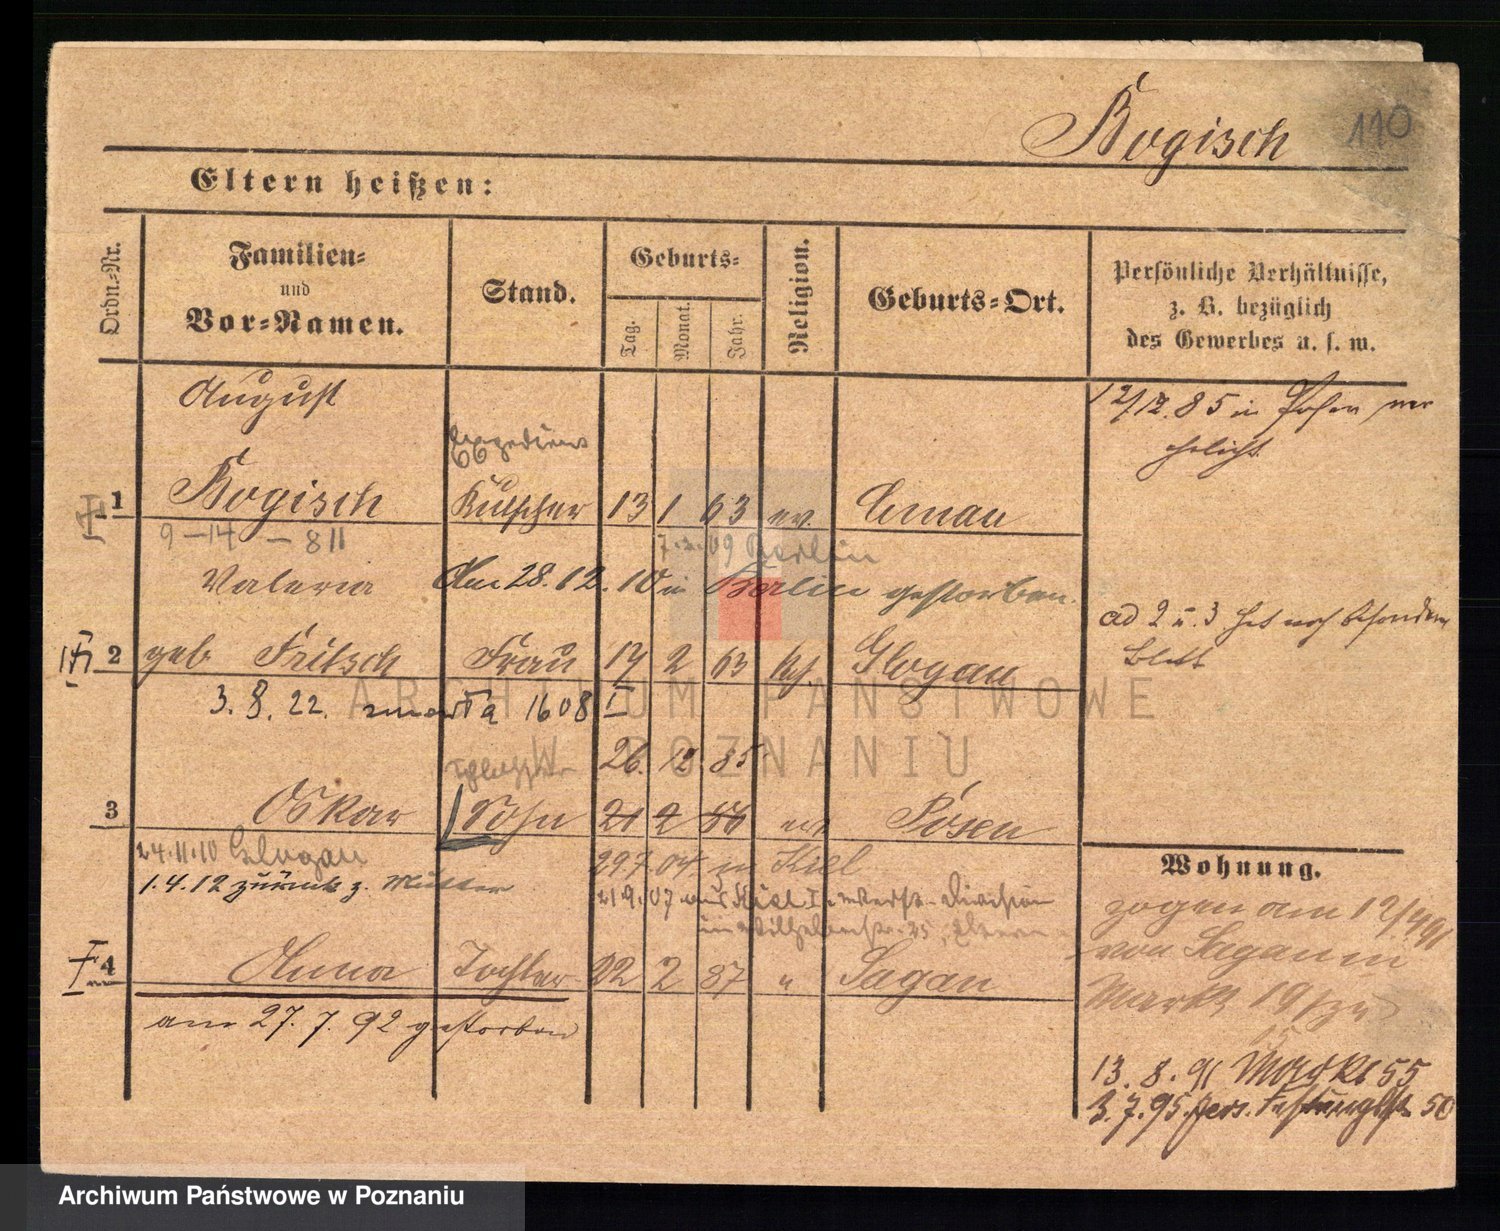 Bogisch 110
Eltern heißen:
Ordn.-Nr.
Familien-
und
Vor-Namen.
Stand.
Geburts-
Tag.
Monat.
Jahr.
Religion.
Geburts-Ort.
Persönliche Verhältnisse,
z. B. bezüglich
des Gewerbes u. s. w.
August
12/12. 85 in Posen ver
ehelicht
1 Bogisch Kutscher 13 1 63 ev.
9-14 - 811
7. 2. 09 Berlin
Valeria Am 28. 12. 10 in Berlin gestorben.
ad 2 u. 3 hat noch besonderes
Blatt
2 geb Fritsch Frau 2 63 kath. Glogau
3. 8. 22. zmarła 1608 I
ARCHIWUM PAŃSTWOWE
W POZNANIU
26. 12. 85
3 Oskar Sohn 21 2 86 ev Posen
24.11.10 Glogau
29 7. 04. in Kiel
1. 4. 12 zurück z. Mutter
21 9. 07 aus Kiel I. Division
in Wilhelmstr. 25, Eltern
4 Anna Tochter 22 2 87 " Sagan
am 27. 7. 92 gestorben
Wohnung.
zogen am 12/4 91
von Sagan in
Markt 19
13. 8. 91 Markt 55
3. 7. 95. 50
Archiwum Państwowe w Poznaniu